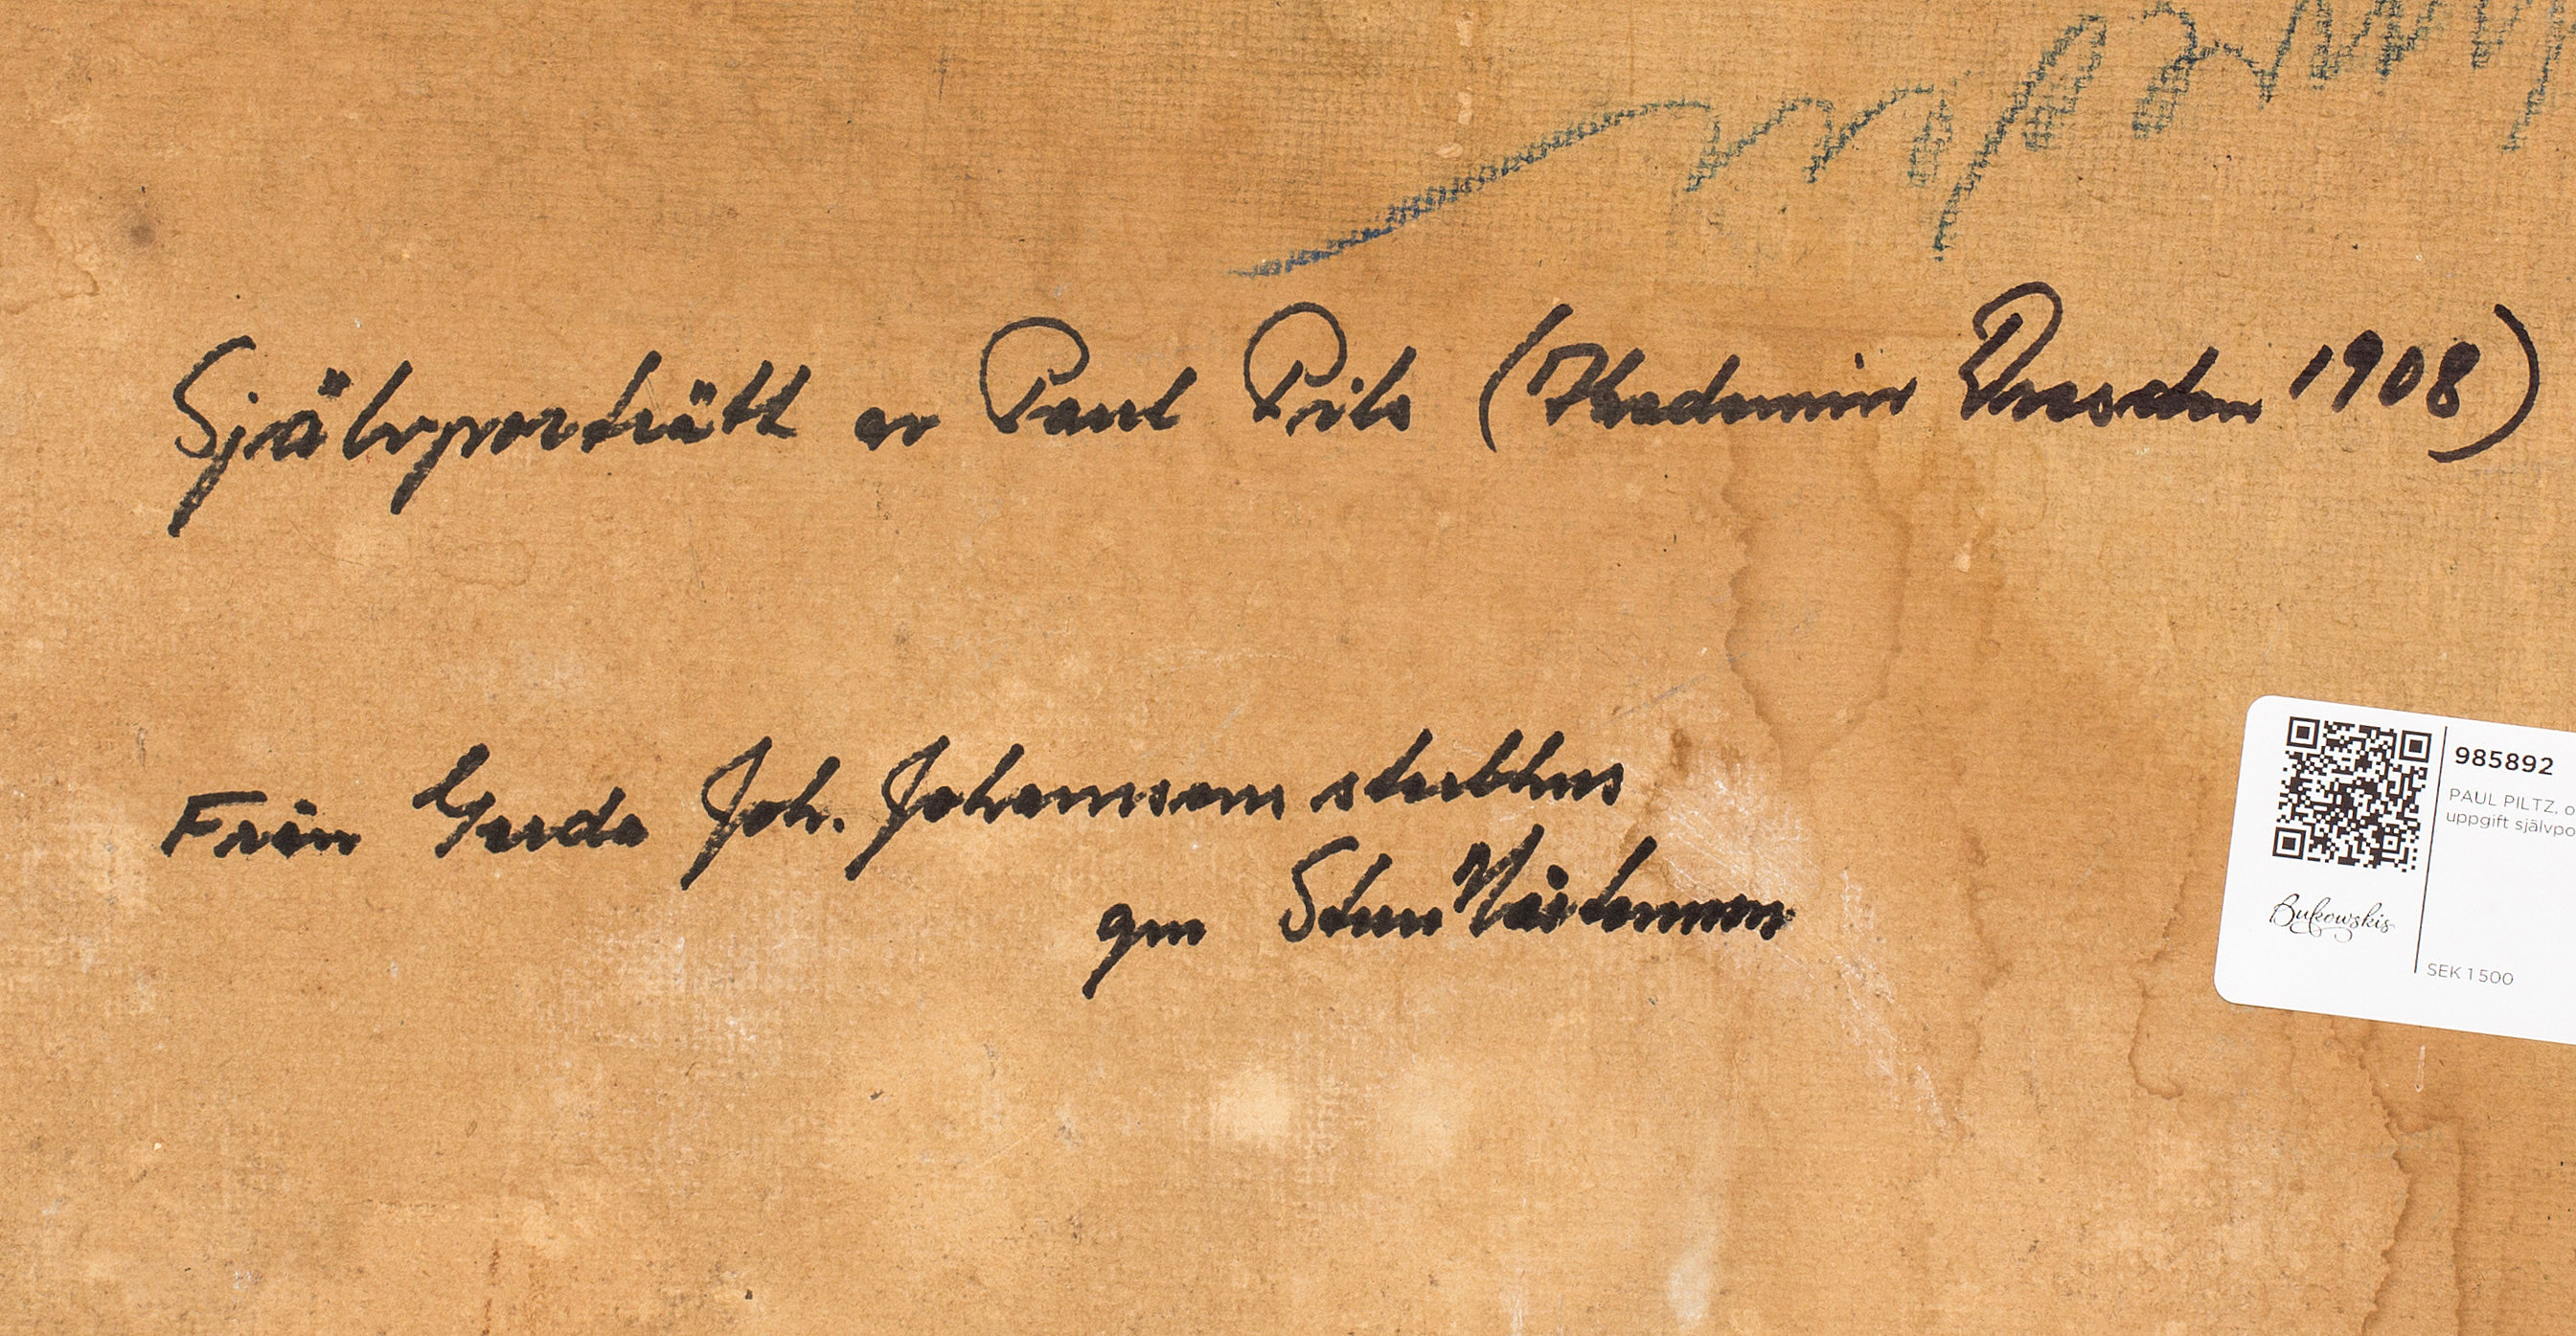 Självporträtt av Paul Pils (Akademin Dresden 1908)
Från Gerda Joh. Johanssons sterbhus
gm Sten
985892
PAUL PILTZ, o
uppgift självpo
Bukowskis
SEK 1 500